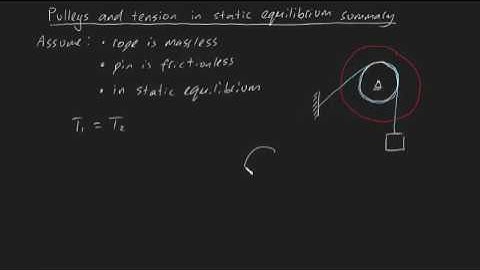 Pulleys and tension in static equilibrium summary
Assume: • rope is massless
• pin is frictionless
• in static equilibrium
T₁ = T₂